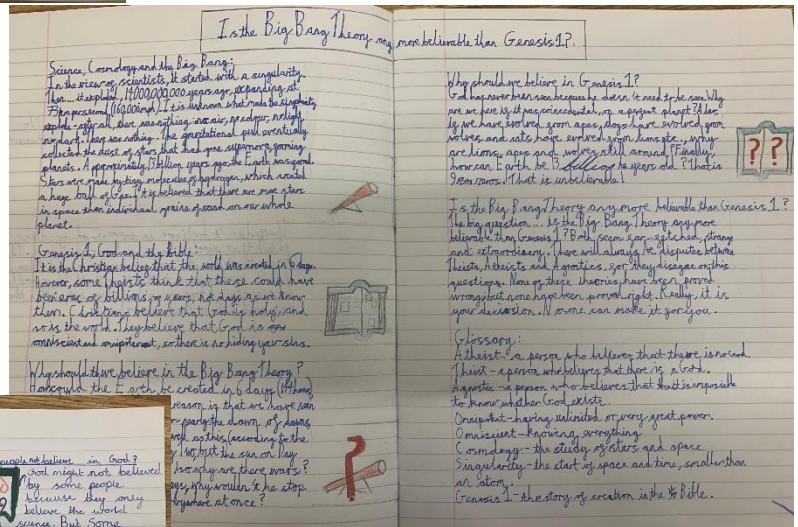 Is the Big Bang Theory any more believable than Genesis 1?
Science, Cosmology and the Big Bang:
In the view of scientists, it started with a singularity.
Then... it exploded, 14,000,000,000 years ago, expanding at
It is unknown what made the singularity
explode - after all, there was nothing - no air, no colour, no light,
no dark. There was nothing. The gravitational pull eventually
collected the dust of stars that had gone supernova, forming
planets. Approximately, 13 billion years ago, the Earth was formed.
Stars were made by tiny molecules of hydrogen, which created
a huge ball of gas. It is believed that there are more stars
in space than individual grains of sand on our whole
planet.
Genesis 1, God and the Bible:
It is the Christian belief that the world was created in 6 days.
However, some Theists think that these could have
been eras of billions of years, not days as we know
them. Christians believe that God is holy, and
so is the world. They believe that God is
omniscient and omnipotent, so there is no hiding your sins.
Why should we believe in the Big Bang Theory?
How could the Earth be created in 6 days (144 hours)
reason is that we have seen
the dawn of dawns,
as this, (according to the
but the sun on Day
so why are there wars?
why wouldn't he stop
everywhere at once?
Why should we believe in Genesis 1?
God has never been seen because he doesn't need to be seen. Why
are we here if it was coincedental, on a perfect planet? Also,
if we have evolved from apes, dogs have evolved from
wolves and cats have evolved from lions etc., why
are lions, apes and wolves still around? Finally,
how can Earth be 13 billion years old? That is
9 zeros! That is unbelievable!
? ?
Is the Big Bang Theory any more believable than Genesis 1?
The big question... is the Big Bang Theory any more
believable than Genesis 1? Both seem far-fetched, strange
and extraordinary. There will always be disputes between
Theists, Atheists and Agnostics, for they disagree on this
question. None of these theories have been proved
wrong but none have been proved right. Really, it is
your decision. No one can make it for you.
Glossary:
Atheist - a person who believes that there is no God.
Theist - a person who believes that there is a God.
Agnostic - a person who believes that it is impossible
to know whether God exists.
Omnipotent - having unlimited or very great power.
Omniscient - knowing everything.
Cosmology - the study of stars and space
Singularity - the start of space and time, smaller than
an atom.
Genesis 1 - the story of creation in the Bible.
people not believe in God?
God might not believed
by some people
because they only
believe the world
science. But Some